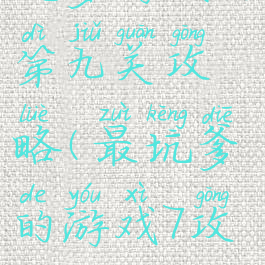 dì jiǔ guān gōng
第九关攻
lüè zuì kēng diē
略(最坑爹
de yóu xì gōng
的游戏7攻